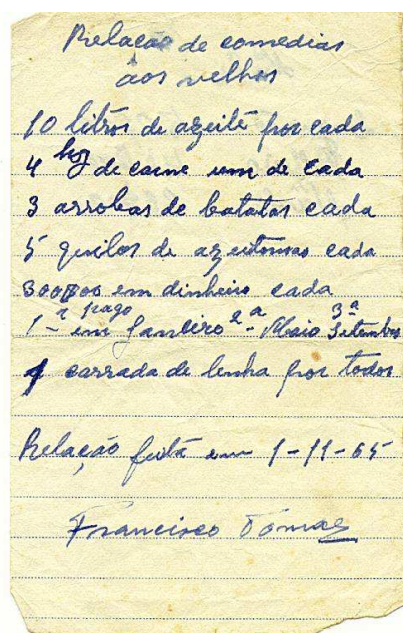 Relação de comedias
aos velhos
10 litros de azeite por cada
4 kg de carne um de cada
3 arrobas de batatas cada
5 quilos de azeitonas cada
300$00 em dinheiro cada
pago
1ª em Janeiro 2ª Maio 3ª Setembro
1 carrada de lenha por todos
Relação feita em 1-11-65
Francisco Tomaz